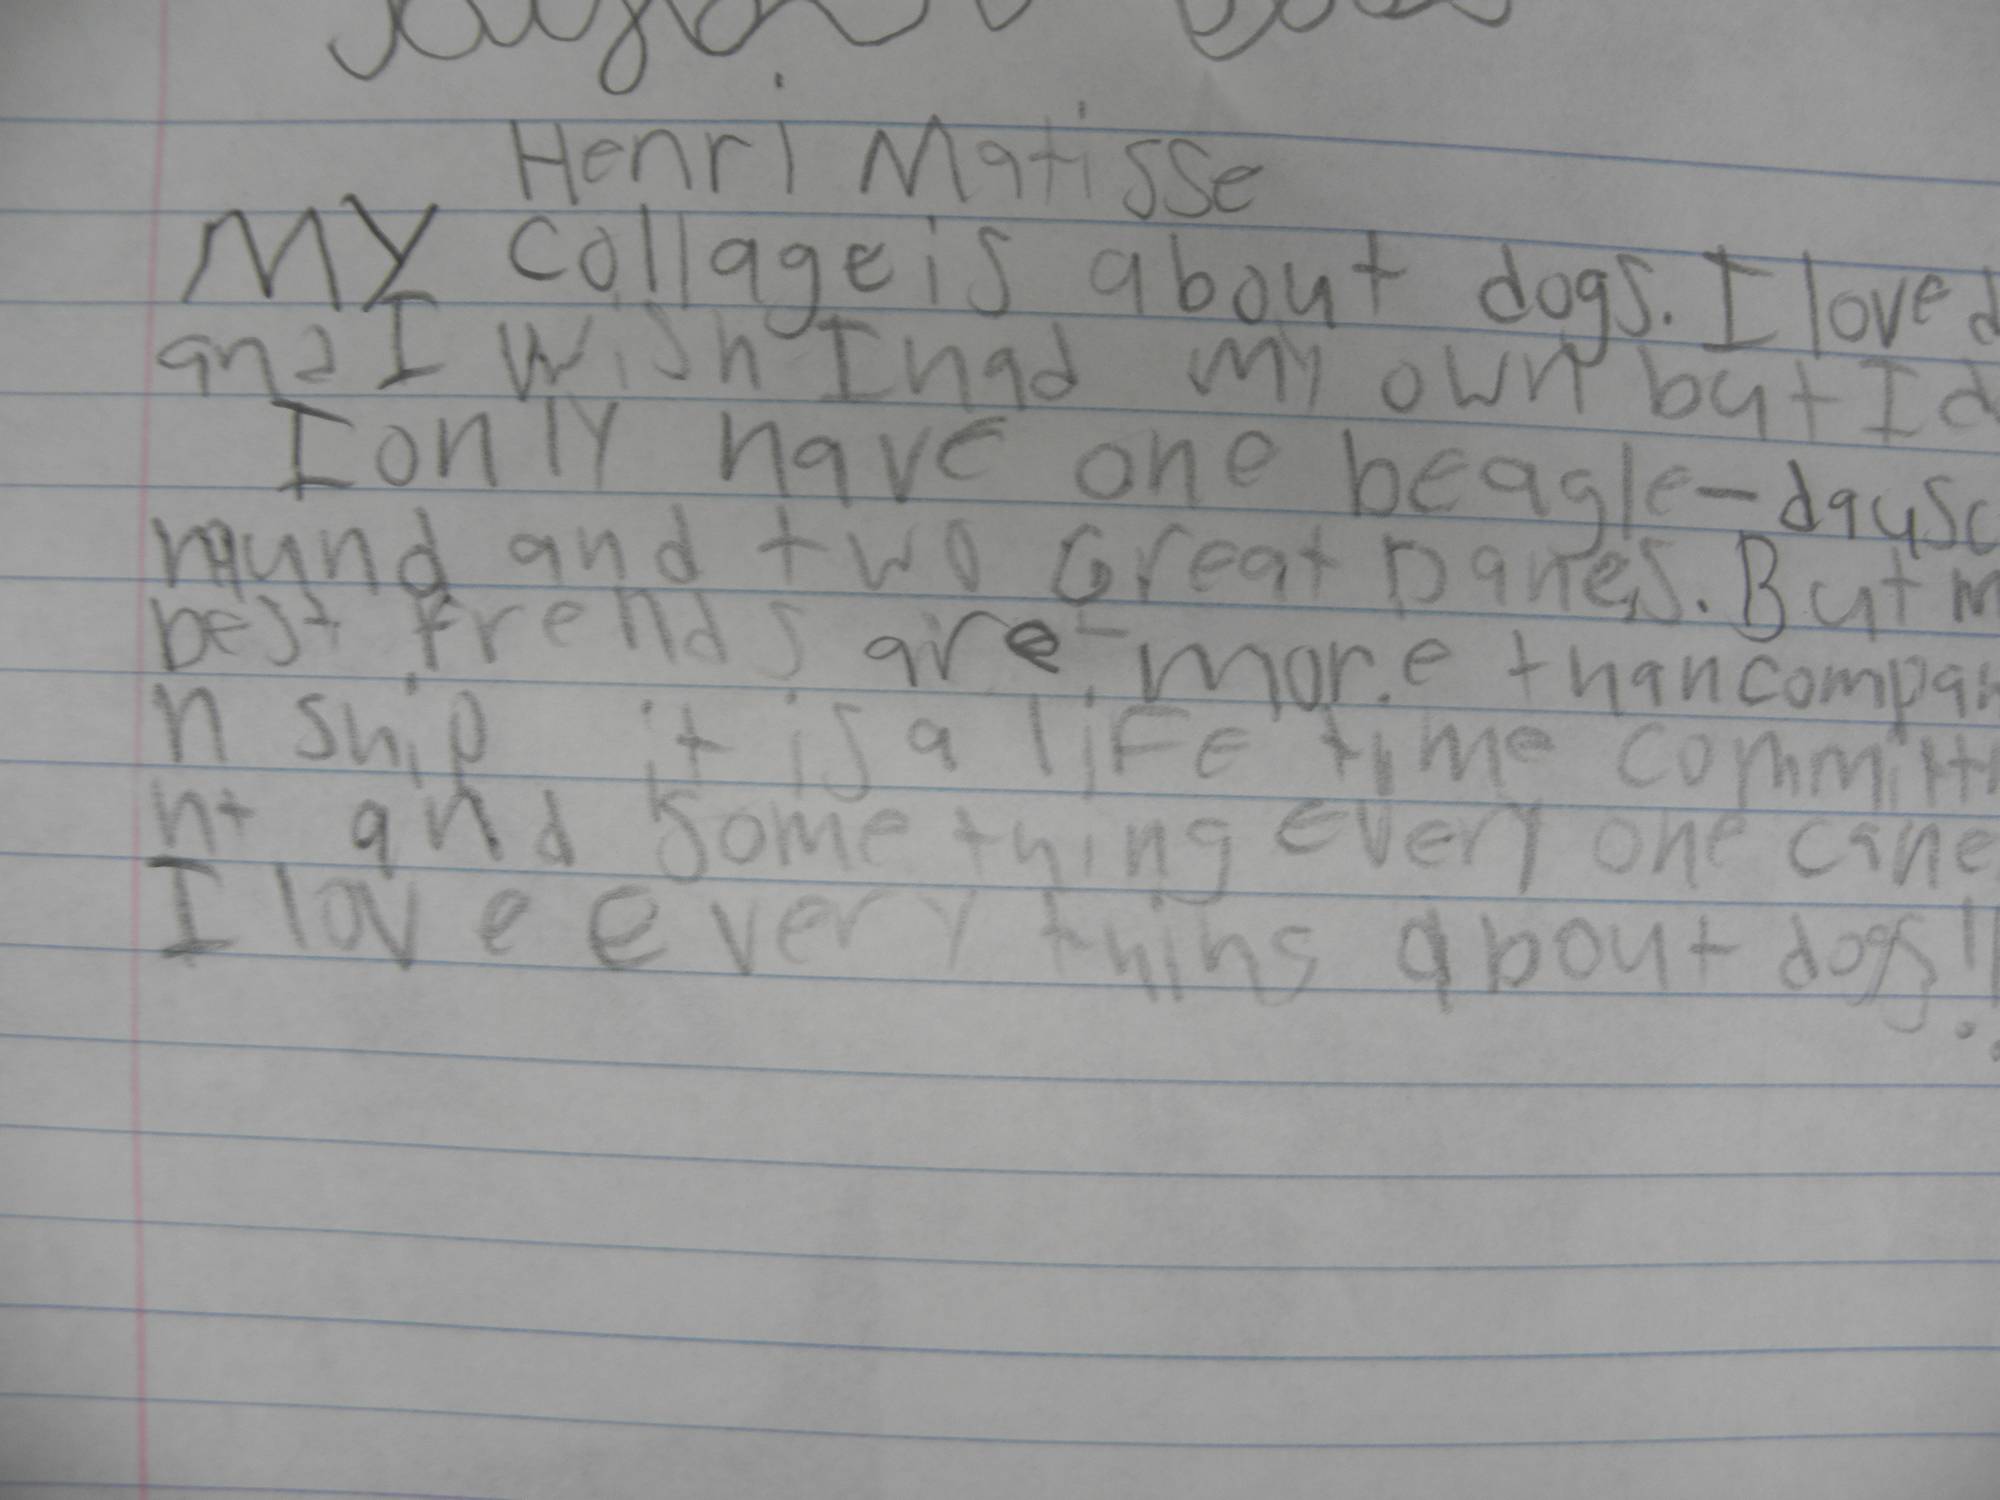 Henri Matisse
My collage is about dogs. I love d
and I wish I had my own but I d
I only have one beagle-dausc
hund and two Great Danes. But m
best frends are more than compan
n ship it is a life time committm
nt and something every one cane
I love everything about dogs!!